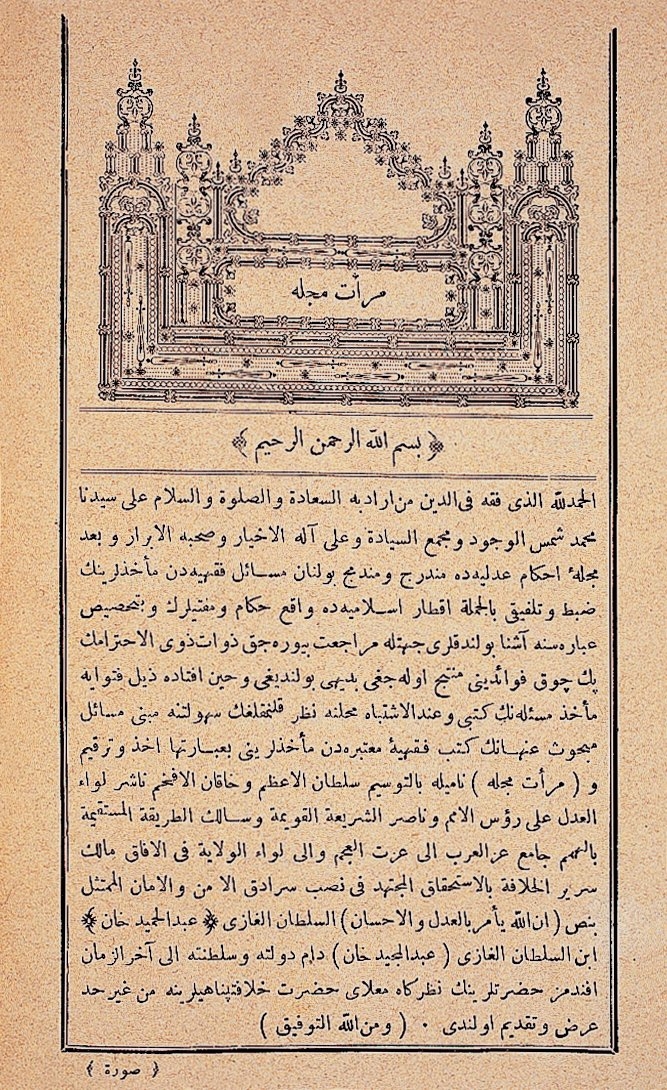 مرأت مجله
﴿ بسم الله الرحمن الرحيم ﴾
الحمدلله الذى فقه فى الدين من اراد به السعادة والصلوة والسلام على سيدنا
محمد شمس الوجود ومجمع السيادة وعلى آله الاخيار وصحبه الابرار وبعد
مجلهٔ احكام عدليه‌ده مندرج ومندمج بولنان مسائل فقهيه‌دن مأخذلرينك
ضبط وتلفيقى بالجملة اقطار اسلاميه‌ده واقع حكام ومفتيلرك وبتخصيص
عباره‌سنه آشنا بولندقلرى جهتله مراجعت بيوره‌جق ذوات ذوى الاحترامك
پك چوق فوائدينى منتج اوله‌جغى بديهى بولنديغى وحين افتاده ذيل فتوايه
مأخذ مسئله‌نك كتبى وعندالاشتباه محلنه نظر قلنمقلغك سهولتنه مبنى مسائل
مبحوث عنهانك كتب فقهيهٔ معتبره‌دن مأخذلرينى بعبارتها اخذ وترقيم
و ( مرأت مجله ) ناميله بالتوسيم سلطان الاعظم وخاقان الافخم ناشر لواء
العدل على رؤس الامم وناصر الشريعة القويمة وسالك الطريقة المستقيمة
جامع عز العرب الى عزت العجم والى لواء الولاية فى الافاق مالك
سرير الخلافة بالاستحقاق المجتهد فى نصب سرادق الامن والامان الممتثل
بنص ( ان الله يأمر بالعدل والاحسان ) السلطان الغازى ﴿ عبدالحميد خان ﴾
ابن السلطان الغازى ( عبدالمجيد خان ) دام دولته وسلطنته الى آخر الزمان
افندمز حضرتلرينك نظركاه معلاى حضرت خلافتپناهيلرينه من غير حد
عرض وتقديم اولندى . ( ومن الله التوفيق )
﴿ صورة ﴾